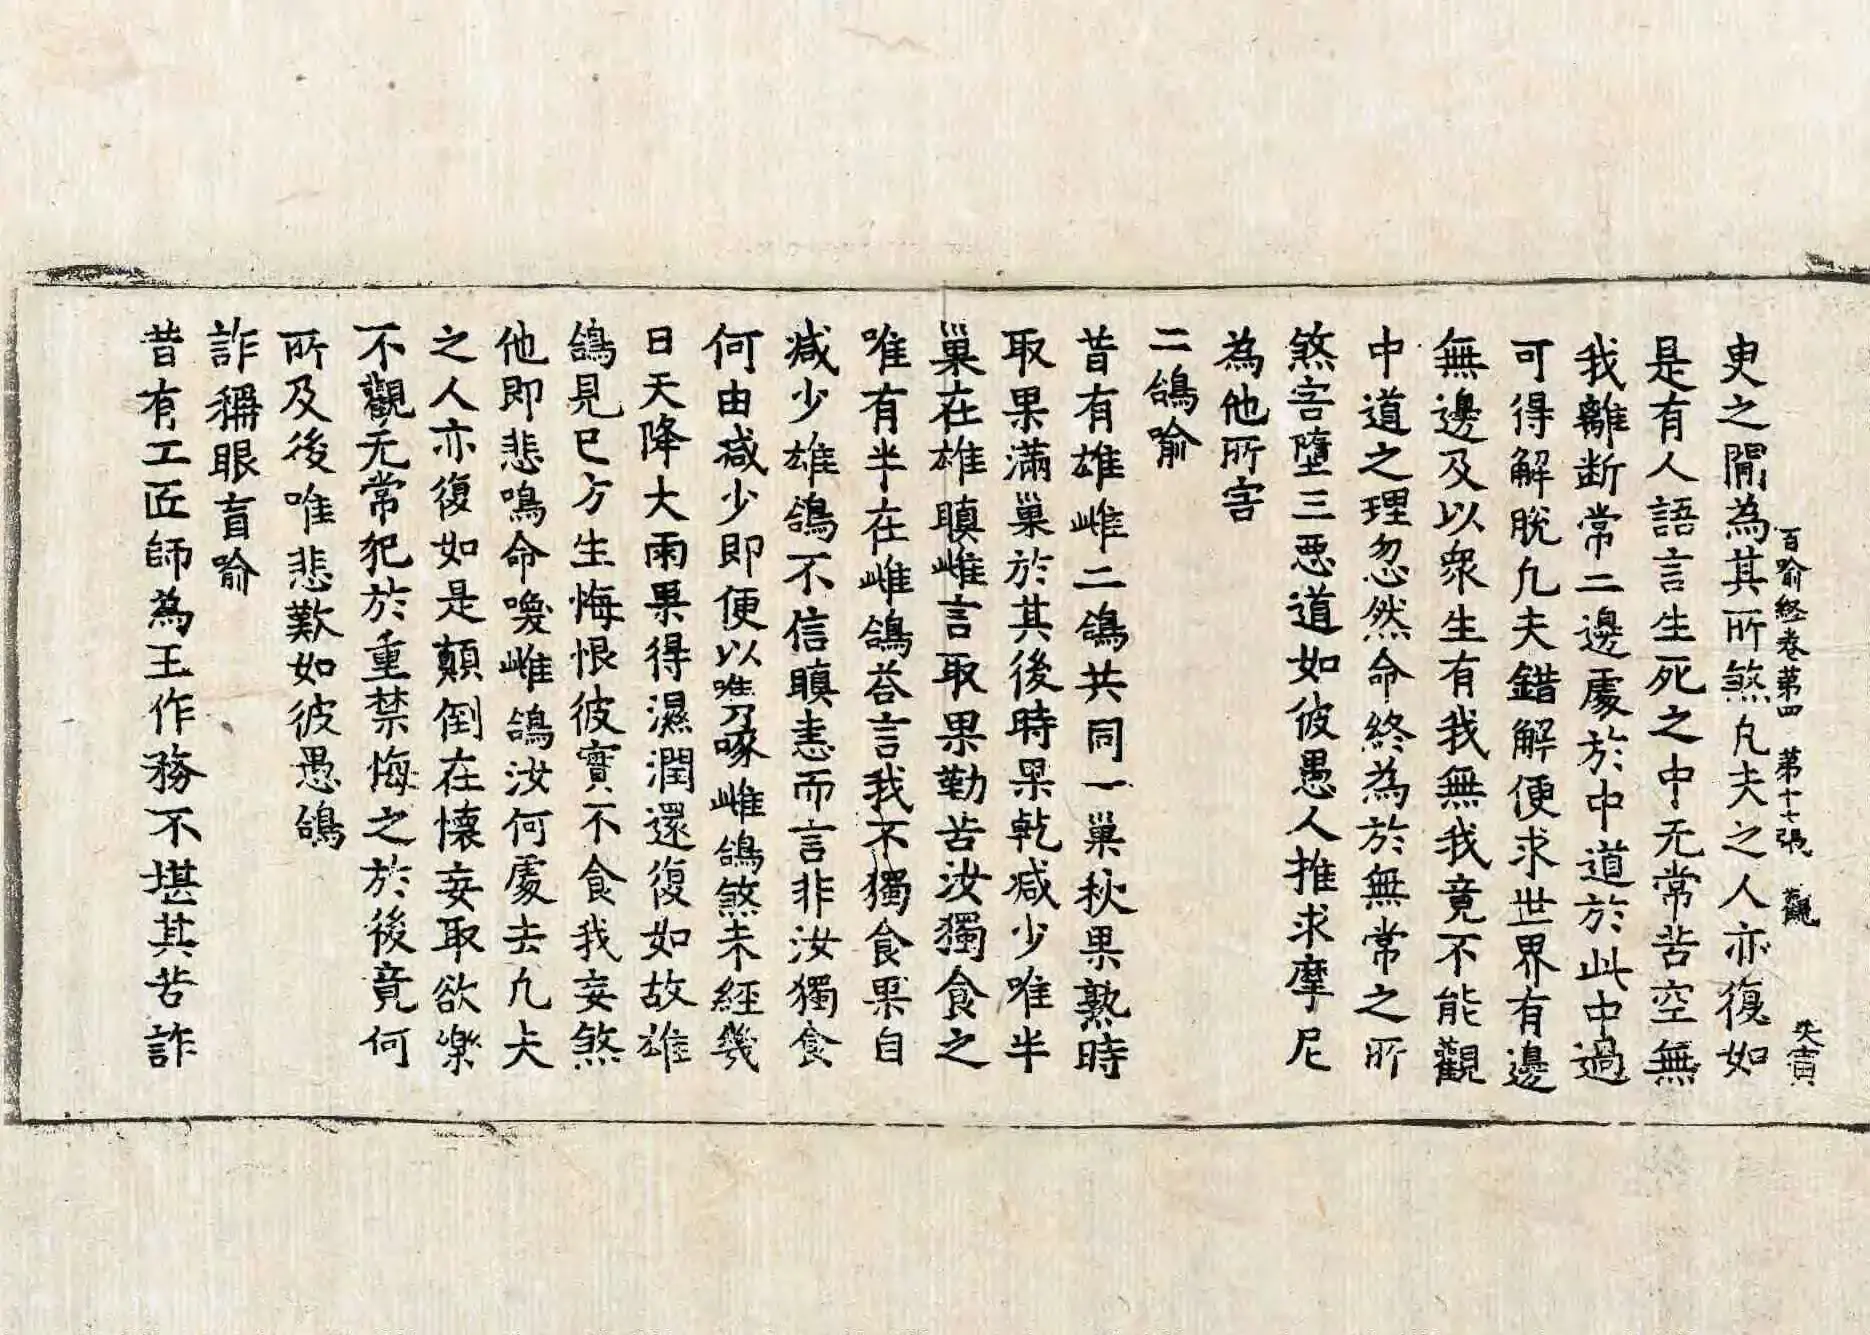 百喻経卷第四　第十七張　觀
矢寅
臾之閒為其所煞凡夫之人亦復如
是有人語言生死之中无常苦空無
我離断常二邊處於中道於此中過
可得解脫凡夫錯解便求世界有邊
無邊及以衆生有我無我竟不能觀
中道之理忽然命終為於無常之所
煞害墮三惡道如彼愚人推求摩尼
為他所害
二鴿喻
昔有雄雌二鴿共同一巢秋果熟時
取果滿巢於其後時果乾减少唯半
巢在雄瞋雌言取果勤苦汝獨食之
唯有半在雌鴿荅言我不獨食果自
减少雄鴿不信瞋恚而言非汝獨食
何由减少即便以嘴啄雌鴿煞未經幾
日天降大雨果得濕潤還復如故雄
鴿見已方生悔恨彼實不食我妄煞
他即悲鳴命喚雌鴿汝何處去凡夫
之人亦復如是顛倒在懷妄取欲樂
不觀无常犯於重禁悔之於後竟何
所及後唯悲歎如彼愚鴿
詐稱眼盲喻
昔有工匠師為王作務不堪其苦詐